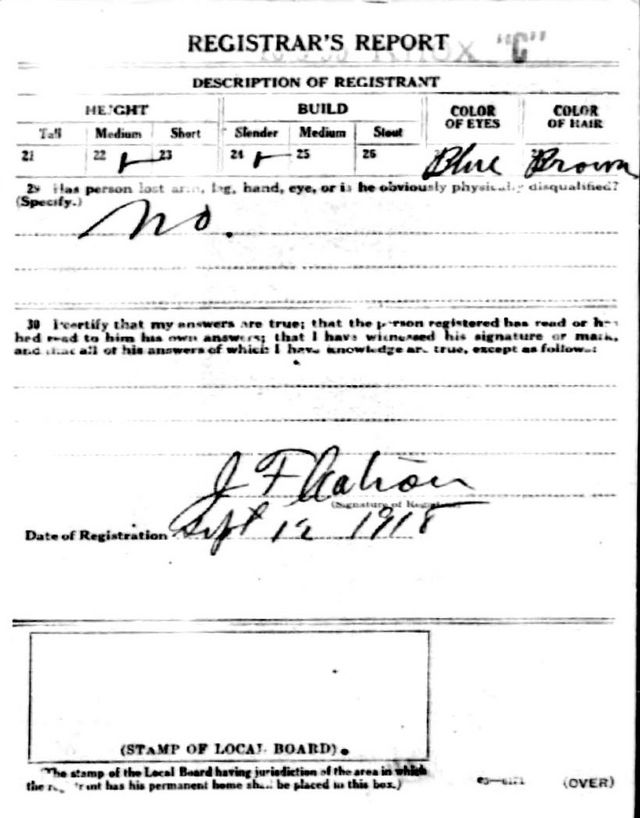 REGISTRAR'S REPORT "C"
DESCRIPTION OF REGISTRANT
HEIGHT BUILD COLOR OF EYES COLOR OF HAIR
Tall Medium Short Slender Medium Stout
21 22 ✓ 23 24 ✓ 25 26 Blue Brown
29 Has person lost arm, leg, hand, eye, or is he obviously physically disqualified?
(Specify.)
No.
30 I certify that my answers are true; that the person registered has read or has
had read to him his own answers; that I have witnessed his signature or mark,
and that all of his answers of which I have knowledge are true, except as follows:
J F
(Signature of Registrar)
Date of Registration Sept 12 1918
(STAMP OF LOCAL BOARD).
The stamp of the Local Board having jurisdiction of the area in which
the registrant has his permanent home shall be placed in this box.)
(OVER)